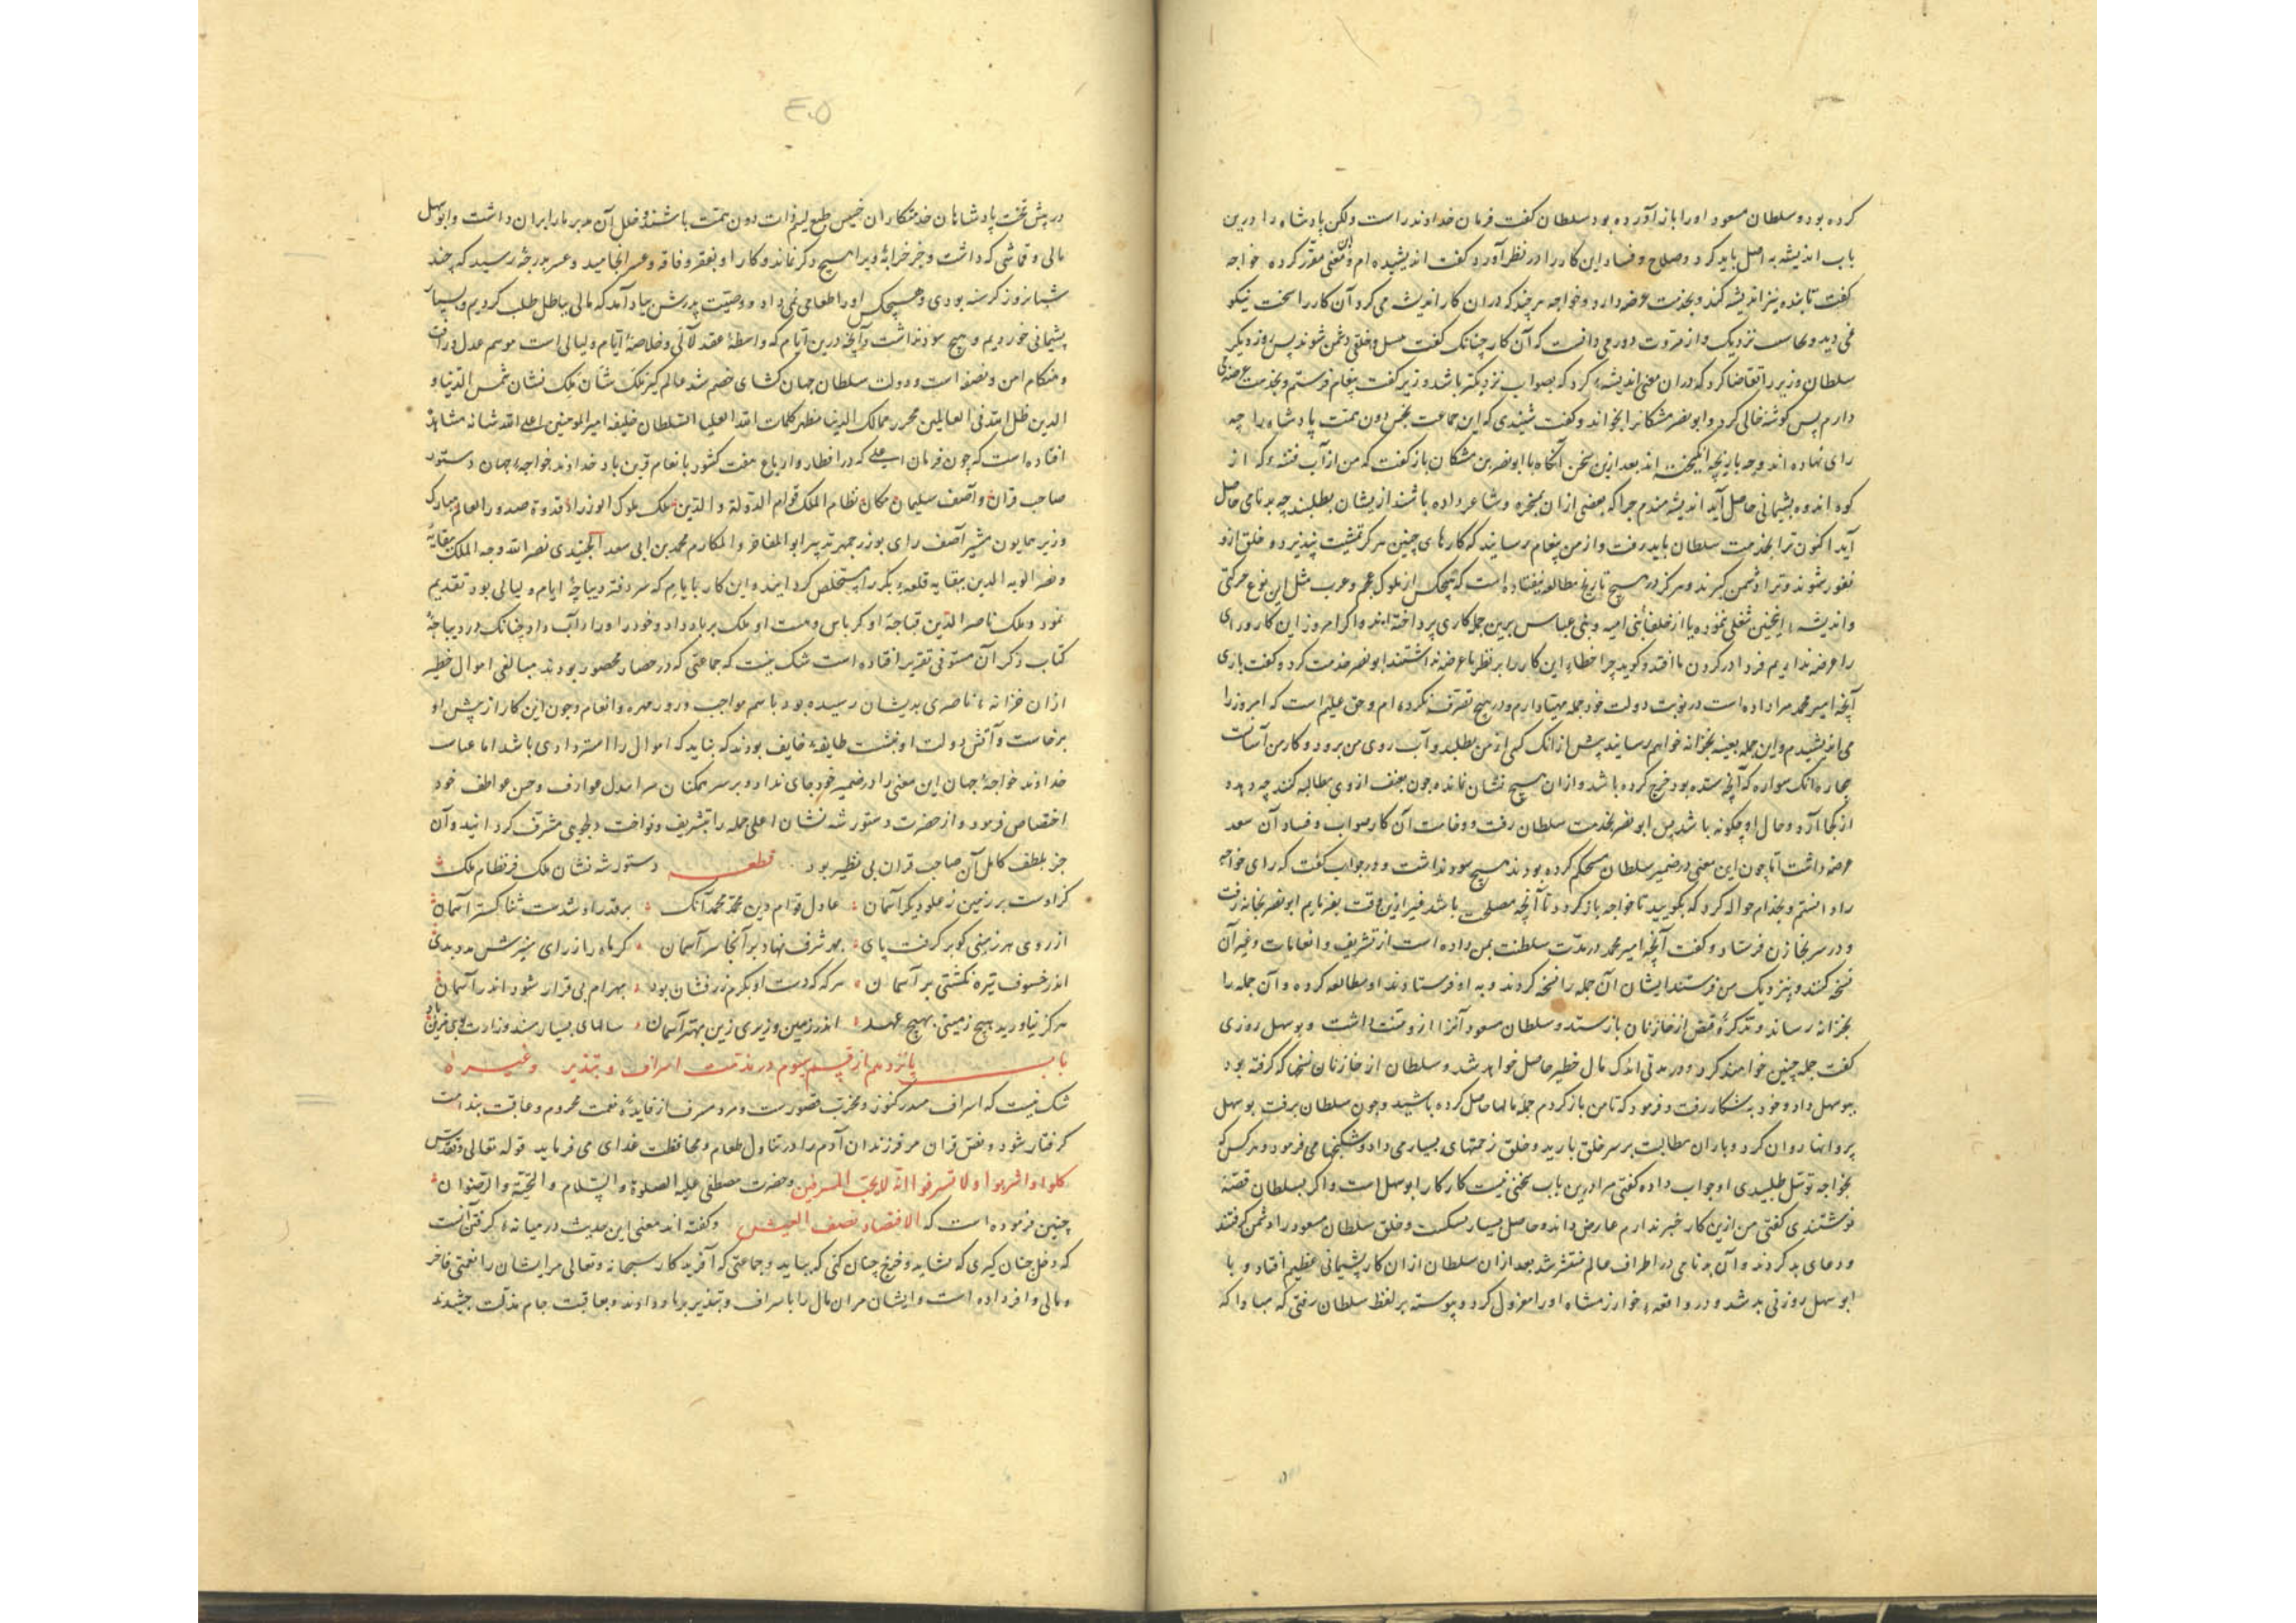 کرده بود و سلطان مسعود او را باز آورده بود سلطان گفت فرمان خداوند راست ولکن پادشاه را درین
باب اندیشه به اصل باید کرد و صلاح و فساد این کار را در نظر آورد گفت اندیشیده‌ام و این معنی مقرر کرده خواجه
گفت تا بنده نیز اندیشه کند و بخدمت عرضه دارد و خواجه هر چند که در آن کار اندیشه می‌کرد آن کار را سخت نیکو
نمی‌دید و از مروت دور می‌دانست که آن کار چنانک گفت خلقی دشمن شوند پس روز دیگر
سلطان وزیر را تقاضا کرد که در آن معنی اندیشهٔ کرد که بصواب نزدیکتر باشد وزیر گفت پیغام فرستم و بخدمت عرضه
دارم پس گوشه خالی کرد و ابونصر مشکان را بخواند و گفت شنیدی که این جماعت دون همت پادشاه را چه
رای نهاده‌اند و چه بازیچه انگیخته‌اند بعد ازین سخن آنگاه با ابونصر بن مشکان باز گفت که من از آب که از
کوه اندوه پشیمانی حاصل آید اندیشه‌مندم چرا که بعضی از آن بمسخره و شاعر داده باشند ازیشان بطلبند چه بدنامی حاصل
آید اکنون ترا بخدمت سلطان باید رفت و از من پیغام رسانید که کارهای چنین هرگز تمشیت نپذیرد و خلق از تو
نفور شوند و ترا دشمن گیرند و هرگز در هیچ تاریخ مطالعه نیفتاده است که هیچکس از ملوک عجم و عرب مثل این نوع حرکتی
و اندیشه اینچنین شغلی نموده یا از خلفا بنی امیه و بنی عباس برین جمله کاری پرداخته‌اند و اگر امروز این کار و رای
را عرضه نداریم فردا در گردن ما افتد و گوید چرا خطاء این کار را بر نظر ما عرضه نداشتند ابونصر خدمت کرد و گفت باری
آنچه امیر محمد مرا داده است در نوبت دولت خود جمله مهیا دارم و در هیچ تصرف نکرده‌ام و حق علیم است که امروز را
می‌اندیشیدم و این جمله بعینه بخزانه خواهم رسانید پیش از آنک کسی از من بطلبد و آب روی من برود و کار من آسانست
بیچاره آنک سواره که آنچه ستده بود خرج کرده باشد و از آن هیچ نشان نمانده چون بعنف از وی مطالبه کنند چه دهد
از کجا آرد و حال او چگونه باشد پس ابونصر بخدمت سلطان رفت و وخامت آن کار صواب و فساد آن
عرضه داشت اما چون این معنی در ضمیر سلطان محکم کرده بودند هیچ سود نداشت و در جواب گفت که رای خواجه
را دانستم و بخدام حواله کرد که بگویید تا خواجه باز گردد تا آنچه مصلحت باشد فیرازین وقت بفرمایم ابونصر بخانه رفت
و در سر بخازن فرستاد و گفت آنچه امیر محمد در مدت سلطنت بمن داده است از تشریف و انعامات و غیر آن
نسخه کنند و بنزدیک من فرستند ایشان آن جمله را نسخه کردند و به او فرستادند او مطالعه کرده و آن جمله را
بخزانه رساند و تذکرهٔ قبض از خازنان باز ستد و سلطان مسعود آنرا از و منت داشت و بوسهل روزی
گفت جمله چنین خواهند کرد و در مدتی اندک مال خطیر حاصل خواهد شد و سلطان از خازنان نسخها که گرفته بود
ببوسهل داد و خود به شکار رفت و فرمود که تا من باز گردم جمله مالها حاصل کرده باشید و چون سلطان برفت بوسهل
پروانها روان کرد و باران مطالبت بر سر خلق بارید و خلق زحمتهای بسیار می‌داد و شکنجها می‌فرمود و هر کس که
بخواجه توسل طلبیدی او جواب داده گفتی مرا درین باب سخنی نیست کار کار ابوسهل است و اگر بسلطان قصه
نوشتندی گفتی من ازین کار خبر ندارم عارض داند و حاصل بسیار سکست و خلق سلطان مسعود را دشمن گرفتند
و دعای بد کردند و آن بدنامی در اطراف عالم منتشر شد بعد از آن سلطان از آن کار پشیمانی عظیم افتاد و با
ابوسهل روزنی بد شد و در واقعهٔ خوارزمشاه او را معزول کرد و پیوسته بر لفظ سلطان رفتی که مبادا که
٤٠٥
در پیش تخت پادشاهان خدمتکاران خسیس طبع لئیم ذات دون همت باشند و خلل آن مدبر مار ابران داشت و ابوسهل
مالی و قماشی که داشت و جز خرابهٔ ویرا هیچ دگر نماند و کار او بفقر و فاقه و عسر انجامید و عسر بدرجهٔ رسید که چند
شبانروز گرسنه بودی و هیچکس او را طعامی نمی‌داد و وصیت پدرش بیاد آمد که مالی بباطل طلب کردیم و بسیار
پشیمانی خوردیم و هیچ سود نداشت و آنچه درین ایام که واسطهٔ عقد لآلی و خلاصهٔ ایام و لیالی است موسم عدل و رأفت
و هنگام امن و نصفت است و دولت سلطان جهان گشای خصم شد عالم گیر ملک نشان ملک نشان شمس الدنیا و
الدین ظل الله فی العالمین محرر ممالک الدنیا مظهر کلمات الله العلیا السلطان خلیفه امیر المومنین اعلی الله شانه مشاهد
افتاده است که چون فرمان اعلی که در اقطار و ارباع هفت کشور با نعام قرین باد خداوند خواجهٔ جهان دستور
صاحب قران و آصف سلیمان مکان نظام الملک قوام الدولة و الدین ملک ملوک الوزراء قدوة صدور العالم مبارک
وزیر همایون مشیر آصف رای بوزرجمهر تدبیر ابو المفاخر و المکارم محمد بن ابی سعد الجنیدی نصر الله وجه الملک ببقایه
و نصر الویه الدین ببقایه قلعهٔ بکر را مستخلص گردانید و این کار با یادم که سر دفتر دیباچهٔ ایام و لیالی بود تقدیم
نمود و ملک ناصر الدین قباجه او کرباس و مست او ملک بر باد داد و خود را در آب داد چنانک در دیباجهٔ
کتاب ذکر آن مستوفی تقریر افتاده است شک نیست که جماعتی که در حصار محصور بودند مبالغی اموال خطیر
از آن خزانهٔ ناصری بدیشان رسیده بود باسم مواجب و روزمره و انعام و چون این کار از پیش او
برخاست و آتش دولت او بنشست طایفهٔ خایف بودند که نباید که اموال را استردادی باشد اما
خداوند خواجهٔ جهان این معنی را در ضمیر خود جای نداد و بر سر همکنان عوارف و حسن عواطف خود
اختصاص فرمود و از حضرت دستور شه نشان اعلی جمله را بتشریف و نواخت دلجویی مشرف گردانید و آن
جز بلطف کامل آن صاحب قران بی نظیر بود قطعه دستور شه نشان ملک فر نظام ملک
کز اوست بر زمین ز علو دیگر آسمان عادل قوام دین محمد محمد آنک بر قدر او شدست ثنا گستر آسمان
از روی هر زمینی کو بر گرفت پای بهر شرف نهاد بر آنجا سر آسمان گر ماه را ز رای منیرش مدد بدی
اندر خسوف تیره نگشتی بر آسمان هر که که دست او بکرم زر فشان بود بهرام بی قرار شود اندر آسمان
هرگز نیاورید بهیچ زمینی بهیچ عهد اندر زمین وزیری زین بهتر آسمان سالهای بسیار مسند وزارت
باب پانزدهم از قسم سوم در مذمت اسراف و تبذیر و غیره
شک نیست که اسراف مبدد کنوز و مخرب قصورست و مرد مسرف از فایدهٔ نعمت محروم و عاقبت بندامت
گرفتار شود و نص قران مر فرزندان آدم را در تناول طعام و محافظت غذای می فرماید قوله تعالی و تقدس
کلوا واشربوا ولا تسرفوا انه لا یحب المسرفین و حضرت مصطفی علیه الصلوة والسلام و التحیة والرضوان
چنین فرموده است که الاقتصاد نصف العیش و گفته‌اند معنی این حدیث در میانه گرفتن آنست
که دخل چنان گیری که نشاید و خرج چنان کنی که بباید و جماعتی که آفریدگار سبحانه و تعالی مر ایشان را نعمتی فاخر
و مالی وافر داده است و ایشان مر آن مال را باسراف و تبذیر بر باد دادند و بعاقبت جام مذلت چشیدند